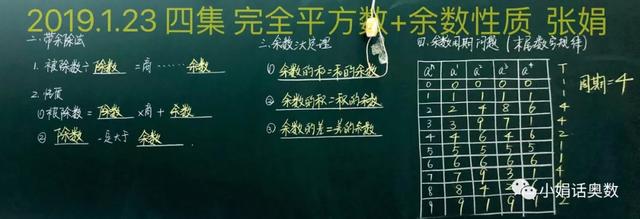 2019.1.23 四集 完全平方数+余数性质 张娟
二、带余除法
1. 被除数÷除数=商……余数
2. 性质
① 被除数=除数×商+余数
② 除数 一定大于 余数.
三、余数三大定理
① 余数的和=和的余数
② 余数的积=积的余数
③ 余数的差=差的余数
四、余数周期问题(末尾数字规律)
aⁿ a¹ a² a³ a⁴ T
0 0 0 0 0 1
1 1 1 1 1 1
2 2 4 8 6 4
3 3 9 7 1 4
4 4 6 4 6 2
5 5 5 5 5 1
6 6 6 6 6 1
7 7 9 3 1 4
8 8 4 2
9 9 1 9 1 2
周期=4
小娟话奥数